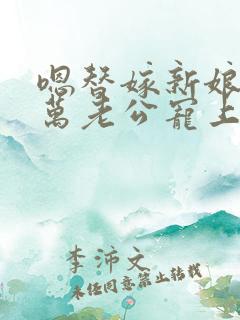 嗯替嫁新娘
萬老公寵上
李沛文
未经同意禁止转载